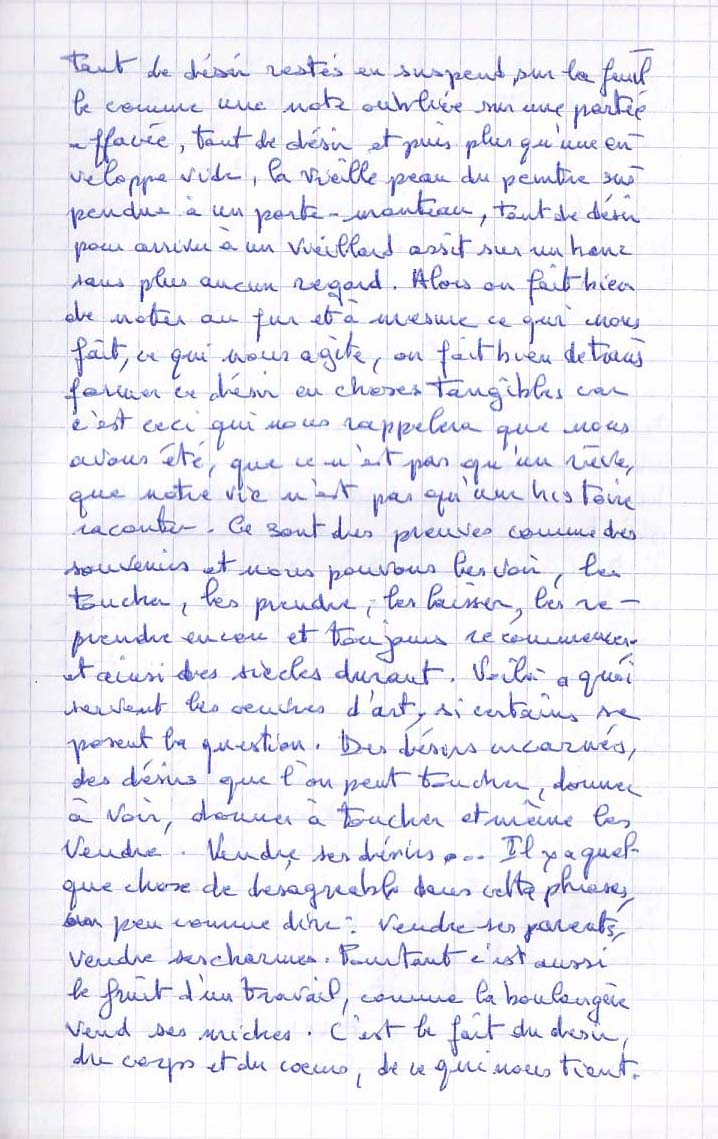 tant de désir restés en suspend sur la feuil
le comme une note oubliée sur une partie
effacée, tant de désir et puis plus qu'une en
veloppe vide, la vieille peau du peintre sus
pendue à un porte-manteau, tant de désir
pour arriver à un vieillard assit sur un banc
sans plus aucun regard. Alors on fait bien
de noter au fur et à mesure ce qui nous
fait, ce qui nous agite, on fait bien de trans
former ce désir en choses tangibles car
c'est ceci qui nous rappelera que nous
avons été, que ce n'est pas qu'un rêve,
que notre vie n'est pas qu'une histoire
raconter. Ce sont des preuves comme des
souvenirs et nous pouvons les voir, les
toucher, les prendre, les laisser, les re-
prendre encore et toujours recommencer
et ainsi des siècles durant. Voilà a quoi
servent les oeuvres d'art, si certains se
posent la question. Des désirs incarnés,
des désirs que l'on peut toucher, donner
à voir, donner à toucher et même les
vendre. Vendre ses désirs... Il y a quel-
que chose de desagreable dans cette phrase,
un peu comme dire: vendre ses parents,
vendre ses charmes. Pourtant c'est aussi
le fruit d'un travail, comme la boulangère
vend ses miches. C'est le fait du desir,
du corps et du coeur, de ce qui nous tient.